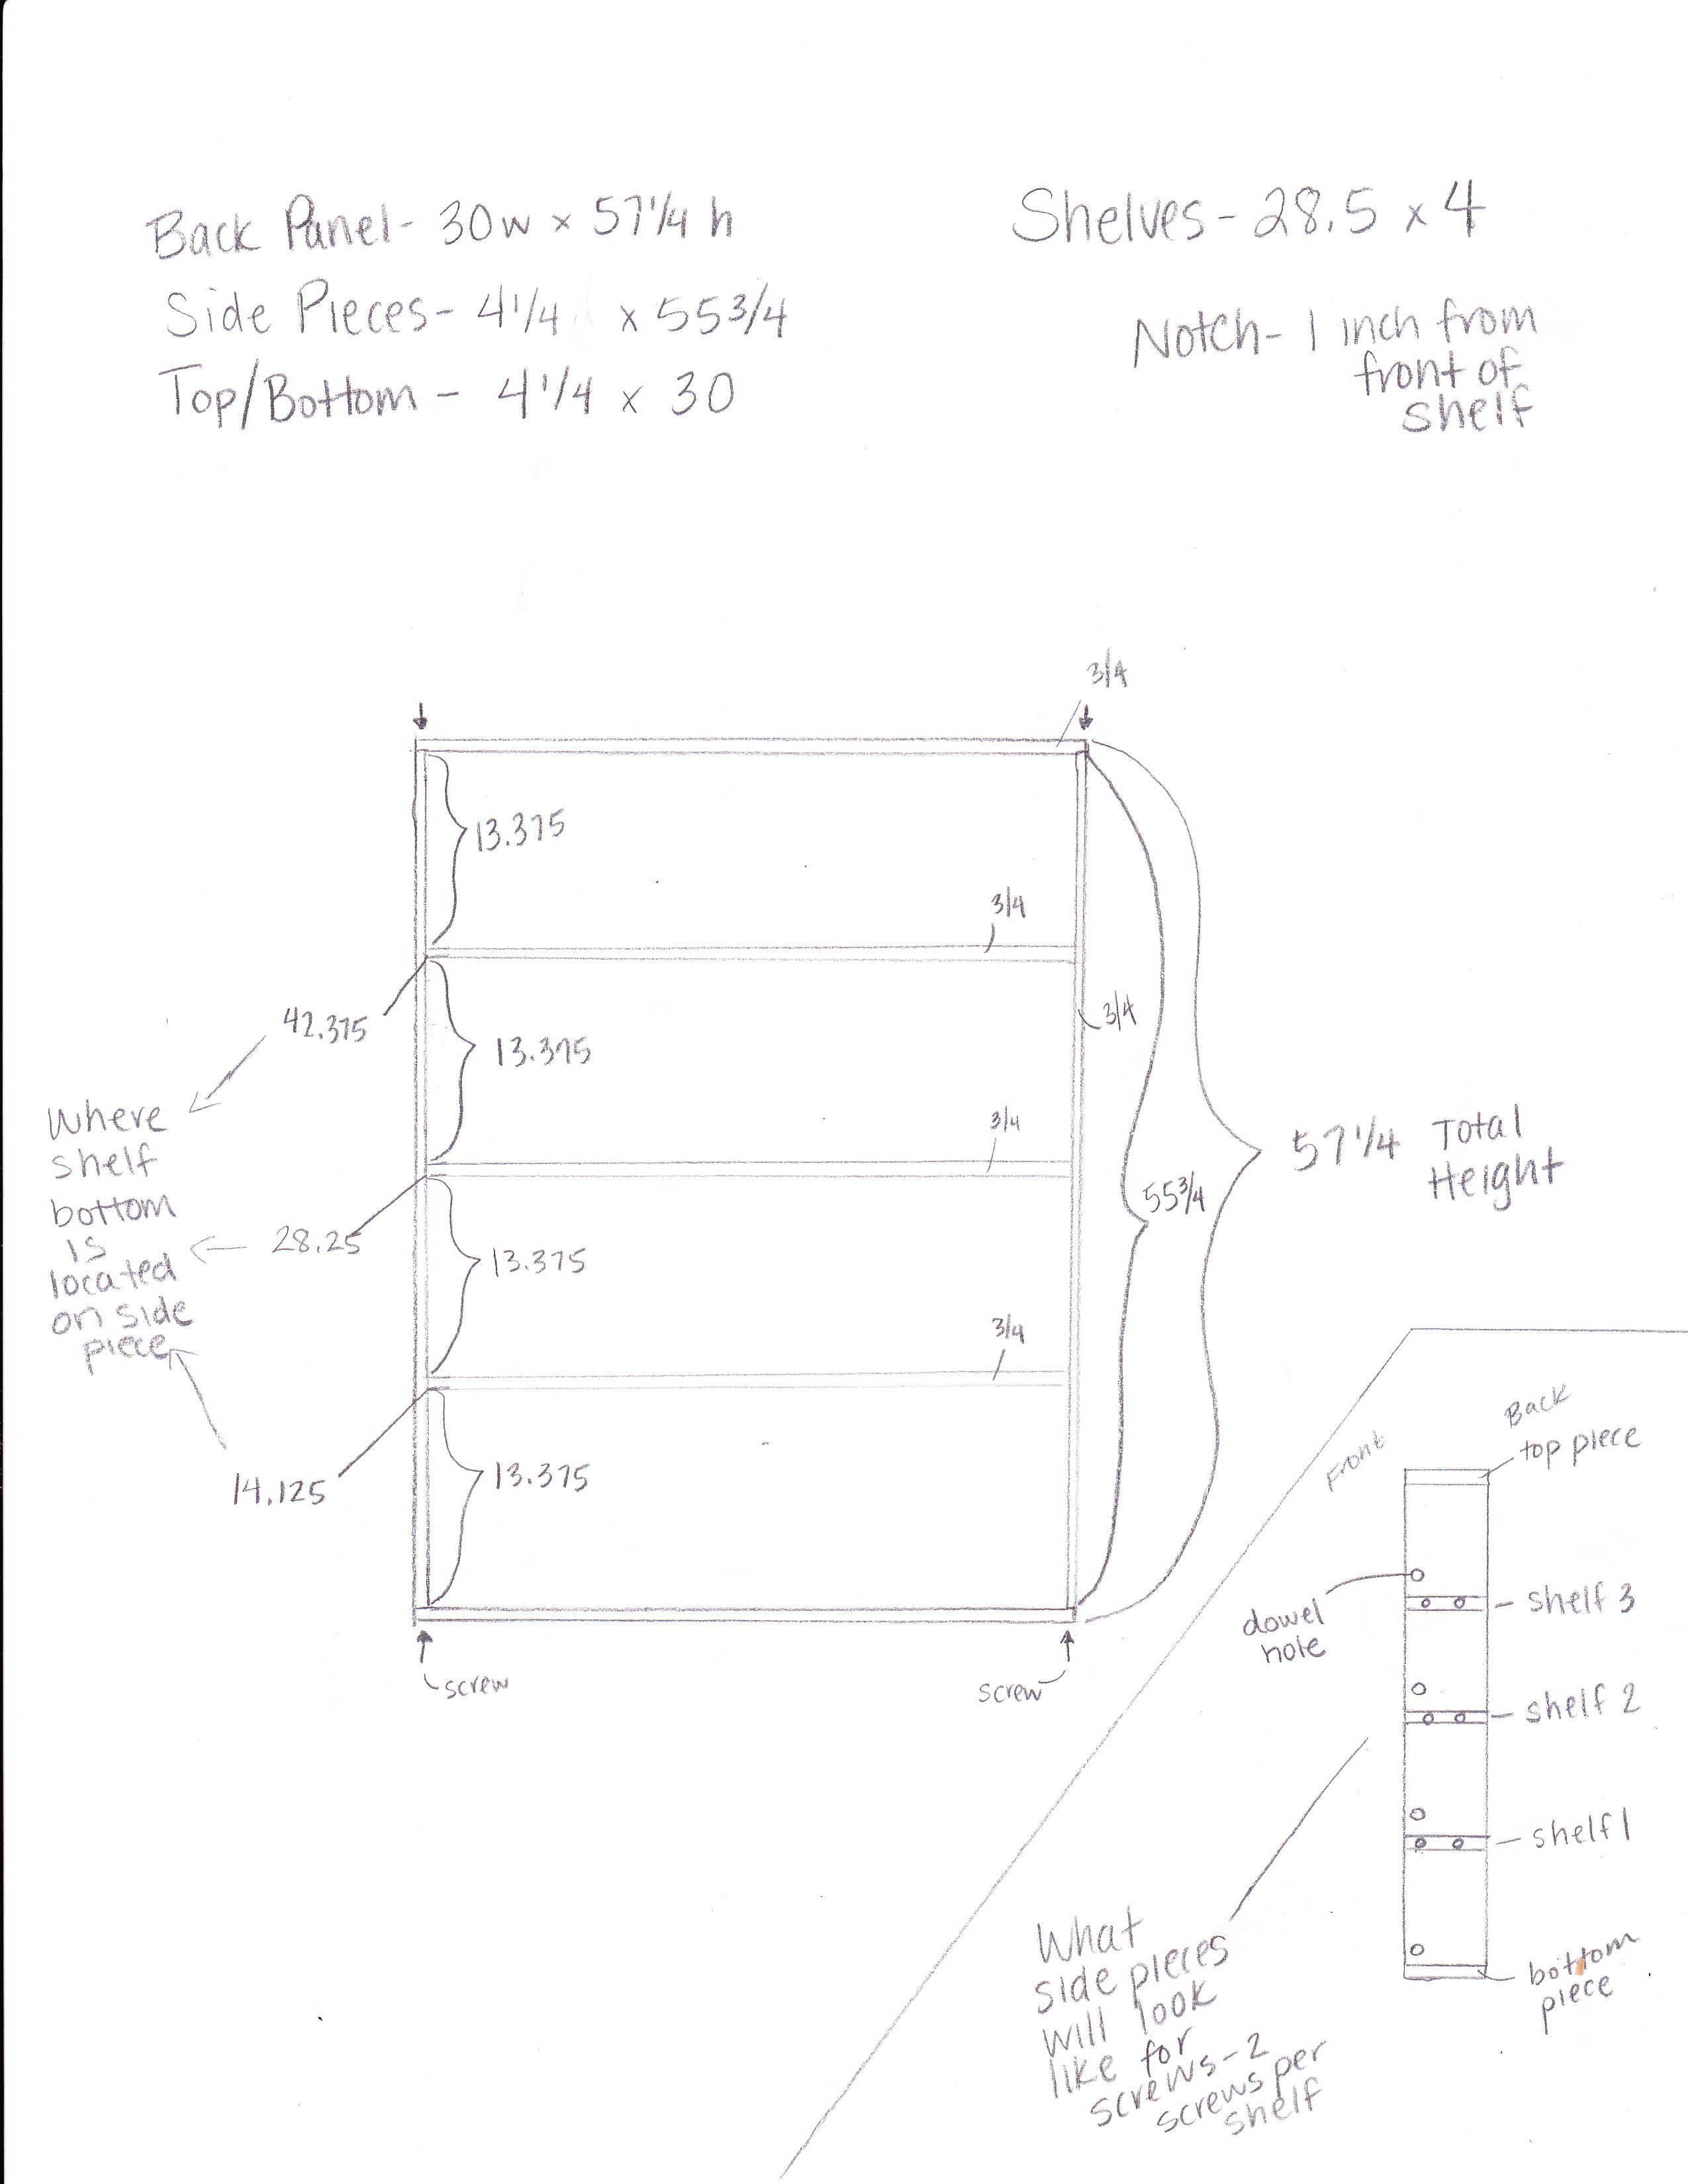 Back Panel- 30w x 57 1/4 h
Side Pieces- 4 1/4 x 55 3/4
Top/Bottom - 4 1/4 x 30
Shelves- 28.5 x 4
Notch- 1 inch from
front of
shelf
3/4
13.375
3/4
42.375
13.375
3/4
Where
shelf
bottom
is
located
on side
piece
3/4
28.25
13.375
3/4
14.125
13.375
55 3/4
57 1/4 Total
Height
screw
screw
Front
Back
top piece
dowel
hole
shelf 3
shelf 2
shelf 1
bottom
piece
What
side pieces
will look
like for
screws-2
screws per
shelf